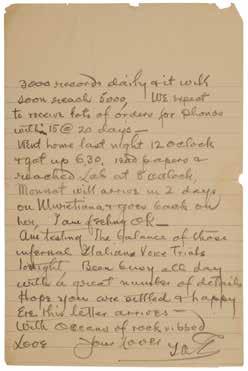 3000 records daily & it will
soon reach 5000, We expect
to receive lots of orders for Phonos
within 15 @ 20 days—
Went home last night 12 Oclock
& got up 6,30, read papers &
reached Lab at 8 oclock
Monnot will arrive in 2 days
on Muretiana & goes back on
her, I am feeling OK—
Am testing The balance of those
infernal Italians Voice Trials
tonight, Been busy all day
with a great number of details
Hope you are settled & happy
Ere this letter arrives—
With Oceans of rock ribbed
Love Your lover TAE